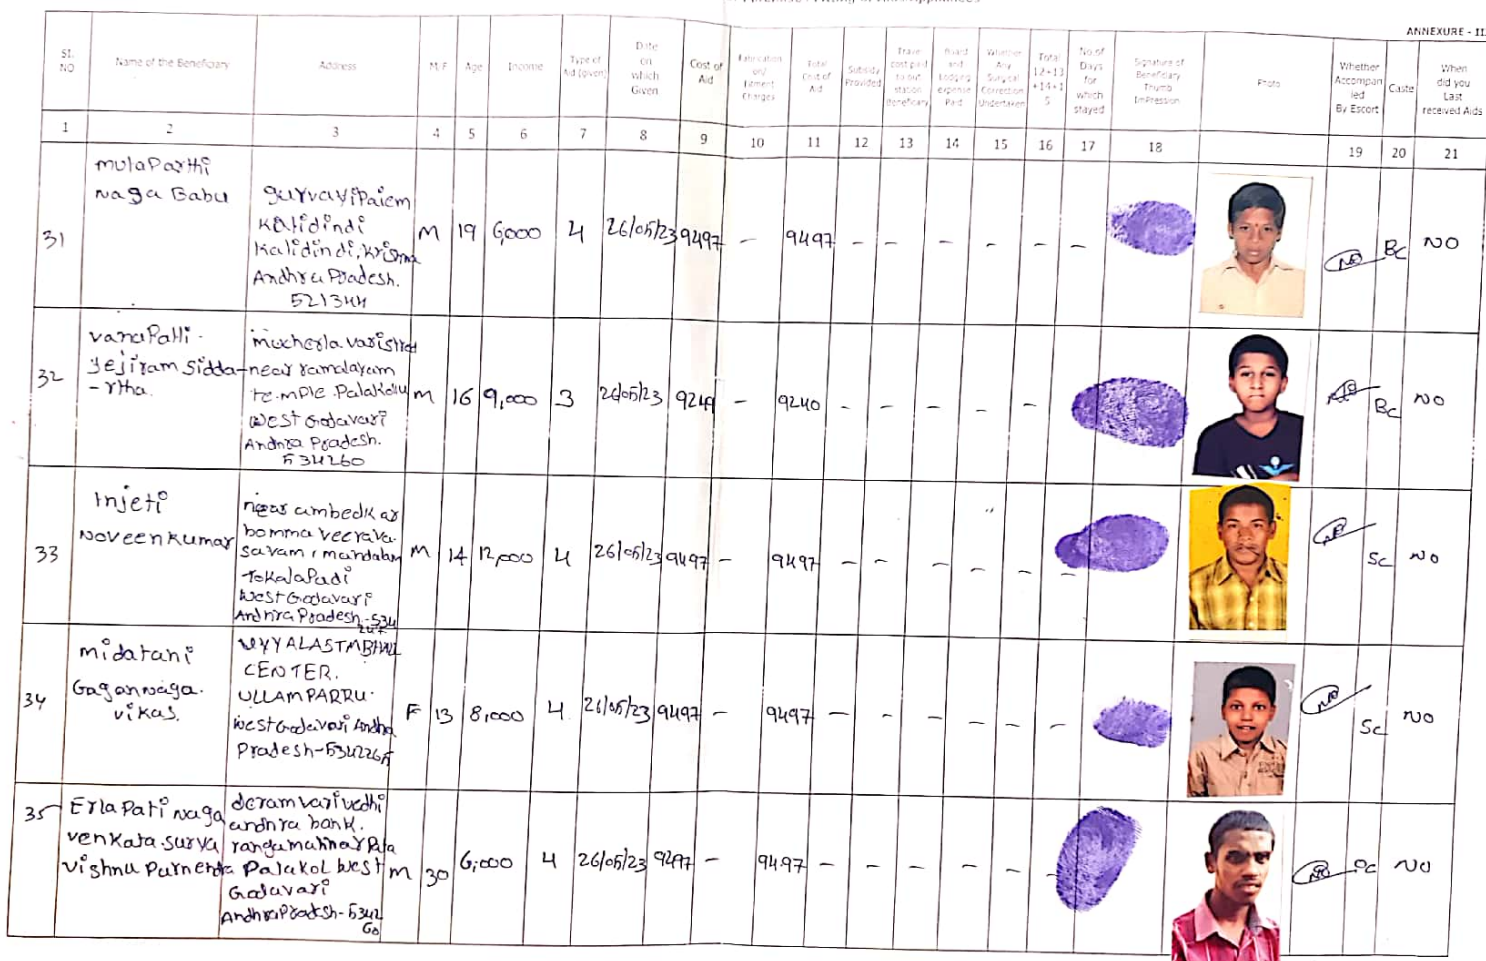 ANNEXURE - III
SL. NO Name of the Beneficiary Address M/F Age Income Type of Aid (given) Date on which Given Cost of Aid Fabrication on/ Fitment Charges Total Cost of Aid Subsidy Provided Travel cost paid to out station Beneficiary Board and Lodging expense Paid Whether Any Surgical Correction Undertaken Total 12+13 +14+1 5 No of Days for which stayed Signature of Beneficiary Thumb Impression Photo Whether Accompan ied By Escort Caste When did you Last received Aids
1 2 3 4 5 6 7 8 9 10 11 12 13 14 15 16 17 18 19 20 21
31 mulaparthi
Naga Babu
gurvayipalem
Kalidindi
Kalidindi, Krishna
Andhra Pradesh.
521344
M 19 6,000 4 26/05/23 9497 - 9497 - - - - - - NO BC NO
32 vanapalli.
Tejiram Sidda-
-rtha.
near ramalayam
temple Palakollu
West Godavari
Andhra Pradesh.
534260
M 16 9,000 3 26/05/23 9240 - 9240 - - - - - - NO BC NO
33 Injeti
Noveen Kumar
near ambedkar
bomma veerava
savam, mandalam
Tokalapadi
West Godavari
Andhra Pradesh-534
247
M 14 12,000 4 26/05/23 9497 - 9497 - - - - - - NO SC NO
34 midatani
Gagan naga.
vikas.
CENTER.
ULLAMPARRU.
West Godavari Andhra
Pradesh-534265
F 13 8,000 4 26/05/23 9497 - 9497 - - - - - - NO SC NO
35 Erlapati naga
venkata surya
vishnu Purnendra
andhra bank.
Palakol West
Godavari
Andhra Pradesh-5342
60
M 30 6,000 4 26/05/23 9497 - 9497 - - - - - - NO NO